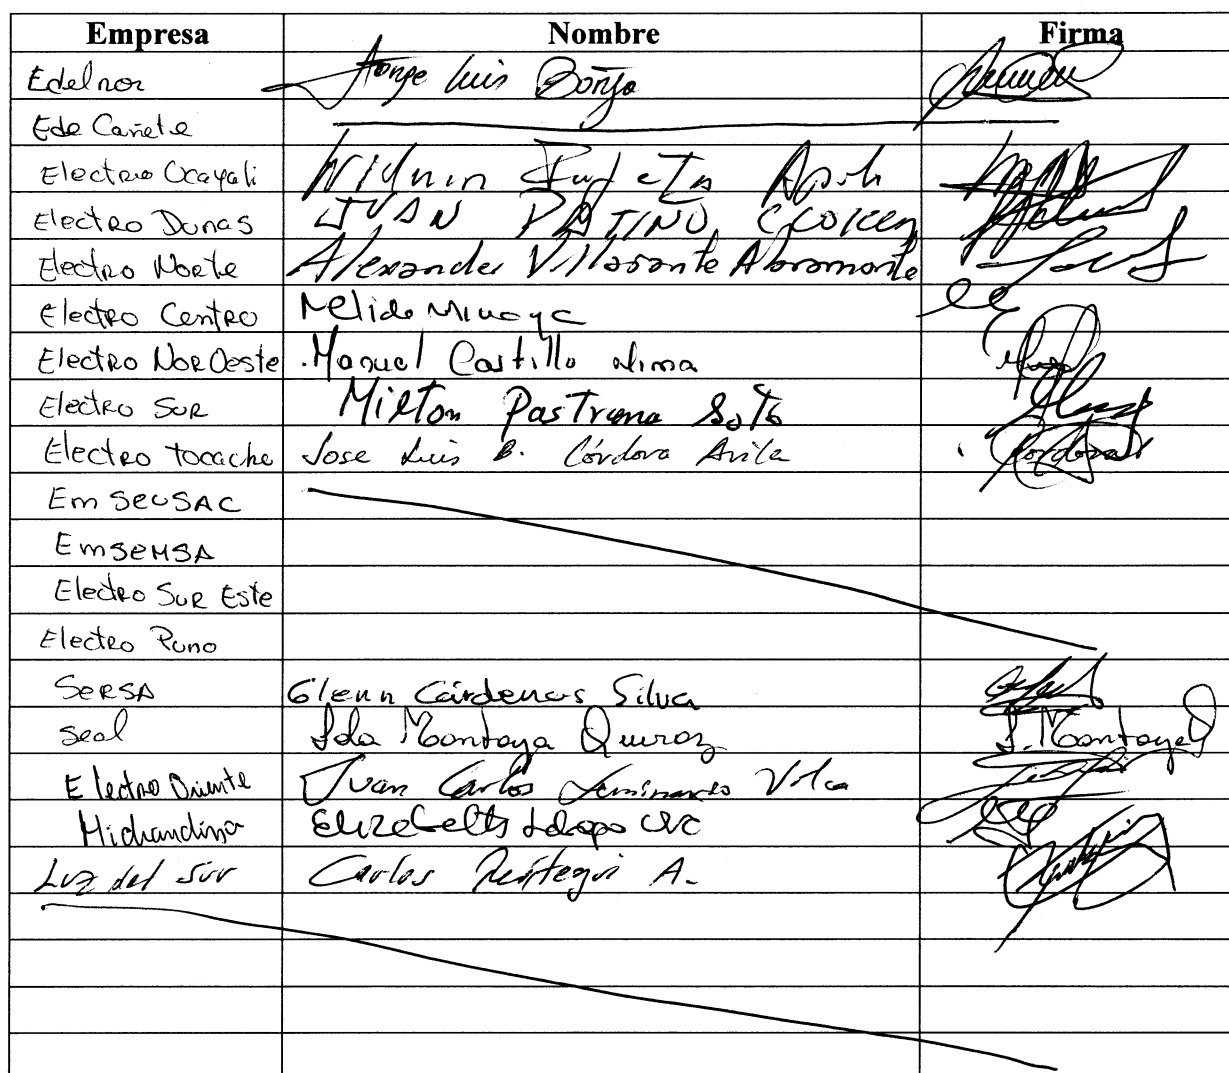 Empresa Nombre Firma
Edelnor Jorge Luis Borja
Ede Cañete
Electro Ucayali
Electro Dunas JUAN PATINO CCOICCA
Electro Norte Alexander Villasante Abramonte
Electro Centro Melida Minaya
Electro NorOeste Manuel Castillo Nima
Electro Sur Milton Pastrana Soto
Electro tocache Jose Luis B. Córdova Avila
EmseuSAC
EmseMSA
Electro Sur Este
Electro Puno
SERSA Glenn Cárdenas Silva
Seal Lola Montoya Quiroz L. Montoya
Electro Oriente Juan Carlos Seminario Vilca
Hidrandina Elizabeth
Luz del Sur Carlos Reátegui A.